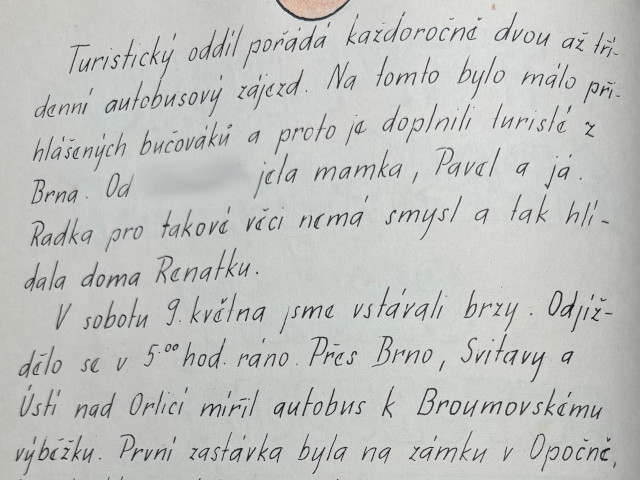 Turistický oddíl pořádá každoročně dvou až tří-
denní autobusový zájezd. Na tomto bylo málo při-
hlášených bučováků a proto je doplnili turisté z
Brna. Od jela mamka, Pavel a já.
Radka pro takové věci nemá smysl a tak hlí-
dala doma Renatku.
V sobotu 9. května jsme vstávali brzy. Odjíž-
dělo se v 5.⁰⁰ hod. ráno. Přes Brno, Svitavy a
Ústí nad Orlicí mířil autobus k Broumovskému
výběžku. První zastávka byla na zámku v Opočně,